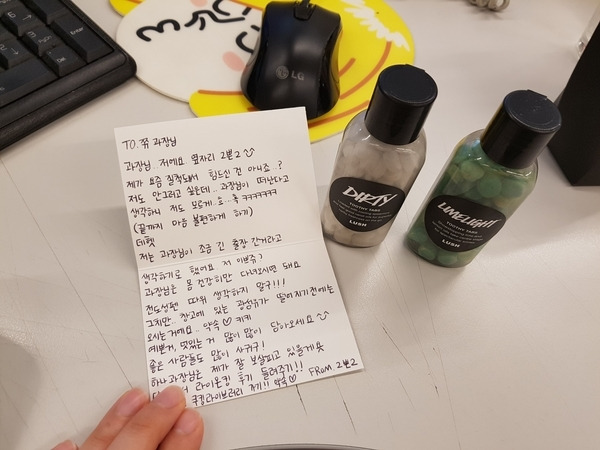 LG
TO. 쮸 과장님
과장님 저예요 옆자리 2쁘2
제가 요즘 질척대서 힘드신 건 아니죠..?
저도 안그러고 싶은데.. 과장님이 떠난다고
생각하니 저도 모르게..요..흑 ㅋㅋㅋㅋㅋㅋㅋ
(끝까지 마음 불편하게 하기)
데헷
저는 과장님이 조금 긴 출장 간거라고
생각하기로 했어요 저 이쁘죠?
과장님은 몸 건강히만 다녀오시면 돼요
전도성펜 따위 생각하지 말구!!!
그치만.. 창고에 있는 광섬유가 떨어지기전에는
오시는거에요.. 약속♡ 키키
예쁜거, 맛있는 거 많이 많이 담아오세요
좋은 사람들도 많이 사귀구!
하나과장님은 제가 잘 보살피고 있을게욧
라이온킹 후기 들려주기!!
쿠킹라이브러리 가기!! 약속♡
FROM. 2쁘2
DIRTY
TOOTHY TABS
LUSH
LIMELIGHT
TOOTHY TABS
LUSH